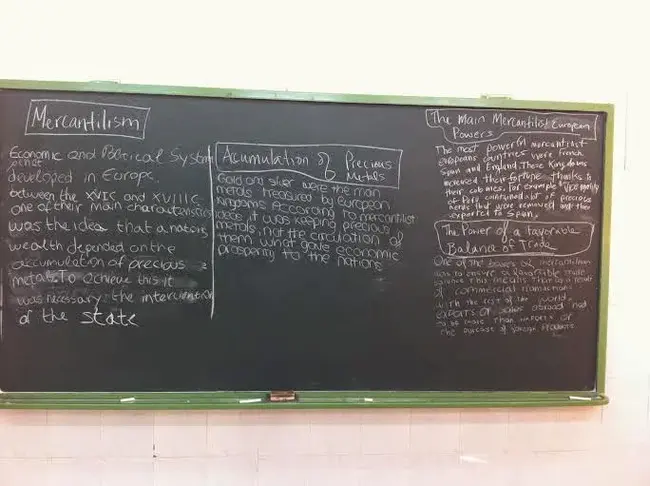 Mercantilism
Economic and Political System
developed in Europe
between the XVIC and XVIIIC
one of their main characteristics
was the idea that a nations
wealth depended on the
accumulation of precious
metals To achieve this it
was necessary the intervention
of the state
Acumulation of Precious
Metals
Gold and silver were the main
metals treasured by european
Kingdoms according to mercantilist
ideas, it was keeping precious
metals, not the circulation of
them what gave economic
prosperity to the nations
The Main Mercantilist European
Powers
The most powerful mercantilist
europeans countries were French,
Spain and England. These Kingdoms
increased their fortune thanks to
their colonies. For example
of Peru a lot of precious
metals that were removed and then
exported to Spain.
The Power of a Favorable
Balance of Trade
One of the of mercantilism
was to ensure a favorable trade
balance this means that as a result
of commercial transactions
with the rest of the world,
exports or sales abroad had
to be more than imports or
the purchase of foreign products.